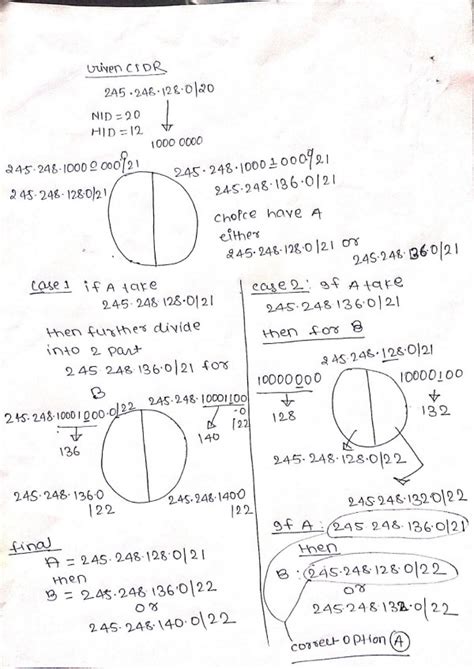 Given CIDR
245.248.128.0/20
NID=20
HID=12
1000 0000
245.248.1000 0 000/21
0
245.248.128.0/21
245.248.1000 1 000/21
0
245.248.136.0/21
choice have A
either
245.248.128.0/21 or
245.248.136.0/21
case 1 if A take
245.248 128.0/21
then further divide
into 2 part
245.248.136.0/21 for
B
245.248.10001000.0/22
136
245.248.10001100
.0
/22
140
245.248.136.0
/22
245.248.1400
/22
final
A = 245.248.128.0/21
then
B = 245.248.136.0/22
or
245.248.140.0/22
case 2: If A take
245.248 136.0/21
then for B
245.248.128.0/21
10000000
128
10000100
132
245.248.128.0/22
245 248.132.0/22
If A: 245 248.136.0/21
then
B: 245.248.128.0/22
or
245.248 132.0/22
correct option A